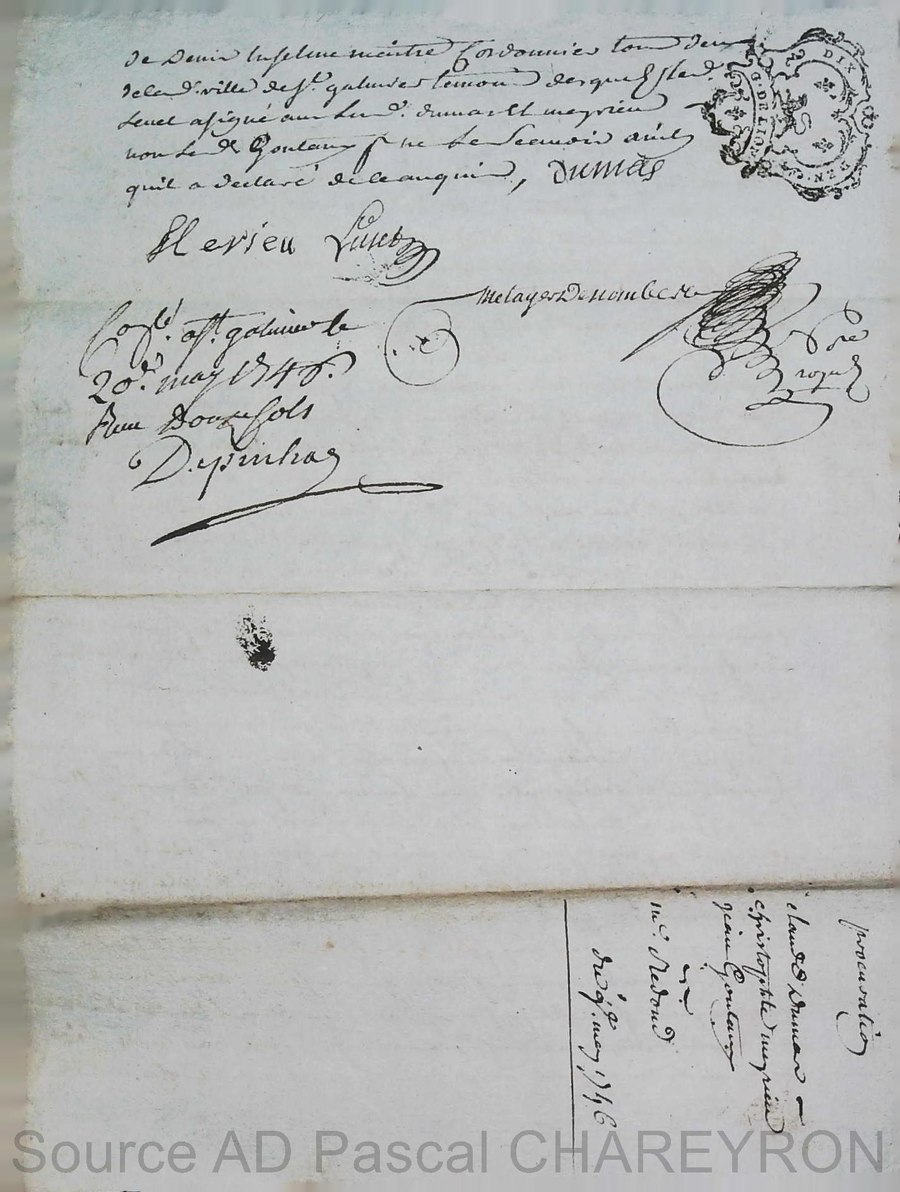 de Denis Inselme maitre Cordonnier tous deux
de lad. ville de St. galmier temoins desquels led.
Lenet a signé aux led. dumas et meyrieu
non led. Goulaux pr ne le scavoir ainsi
quil a declaré de ce enquis, Dumas
G. DE LION
DIX DEN.
Merieu Lenet
metayer Denombert
Conlé. a St. galmier le
20e. may 1746.
Reçu Douze sols
Depinhac
nore
royal
procuration
claude Dumas
christophle meyrieu
jean Goulaux
a
me. Redond
du 9e. may 1746
Source AD Pascal CHAREYRON